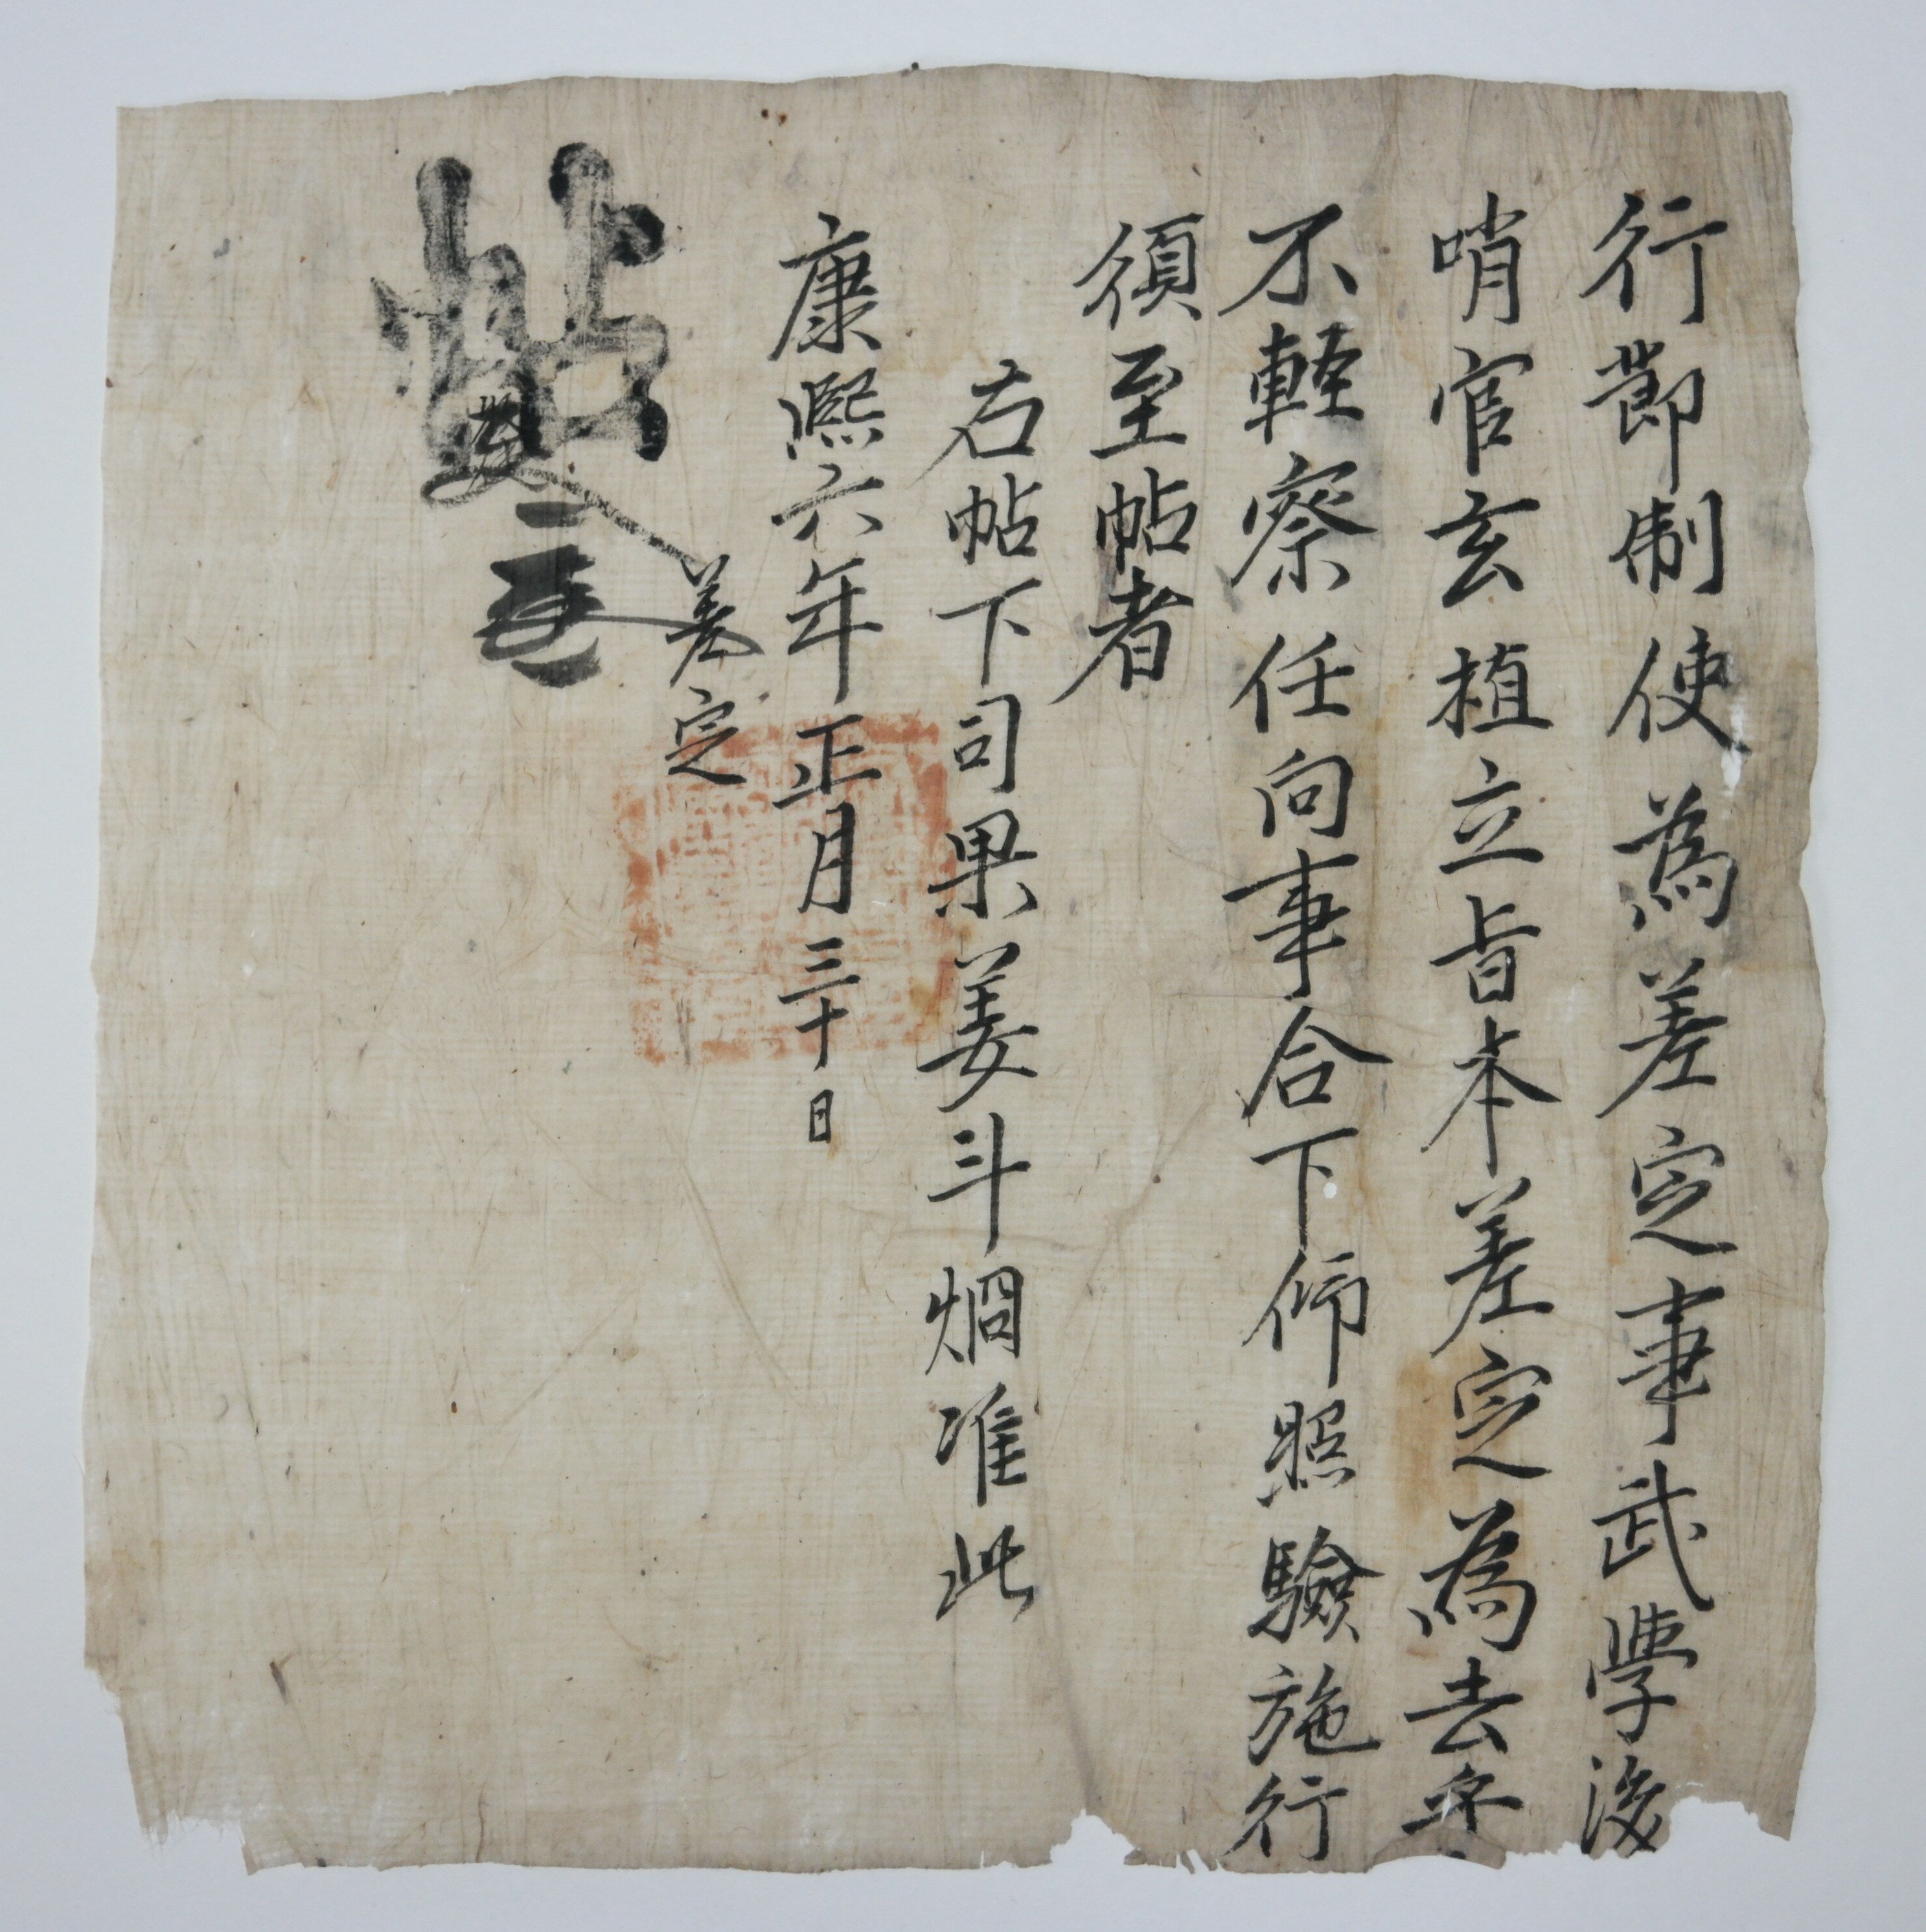 行節制使爲差定事武學後
哨官玄植立旨本差定爲去乎
不輕察任向事合下仰照驗施行
須至帖者
右帖下司果姜斗烱准此
康熙六年正月三十日
差定
帖